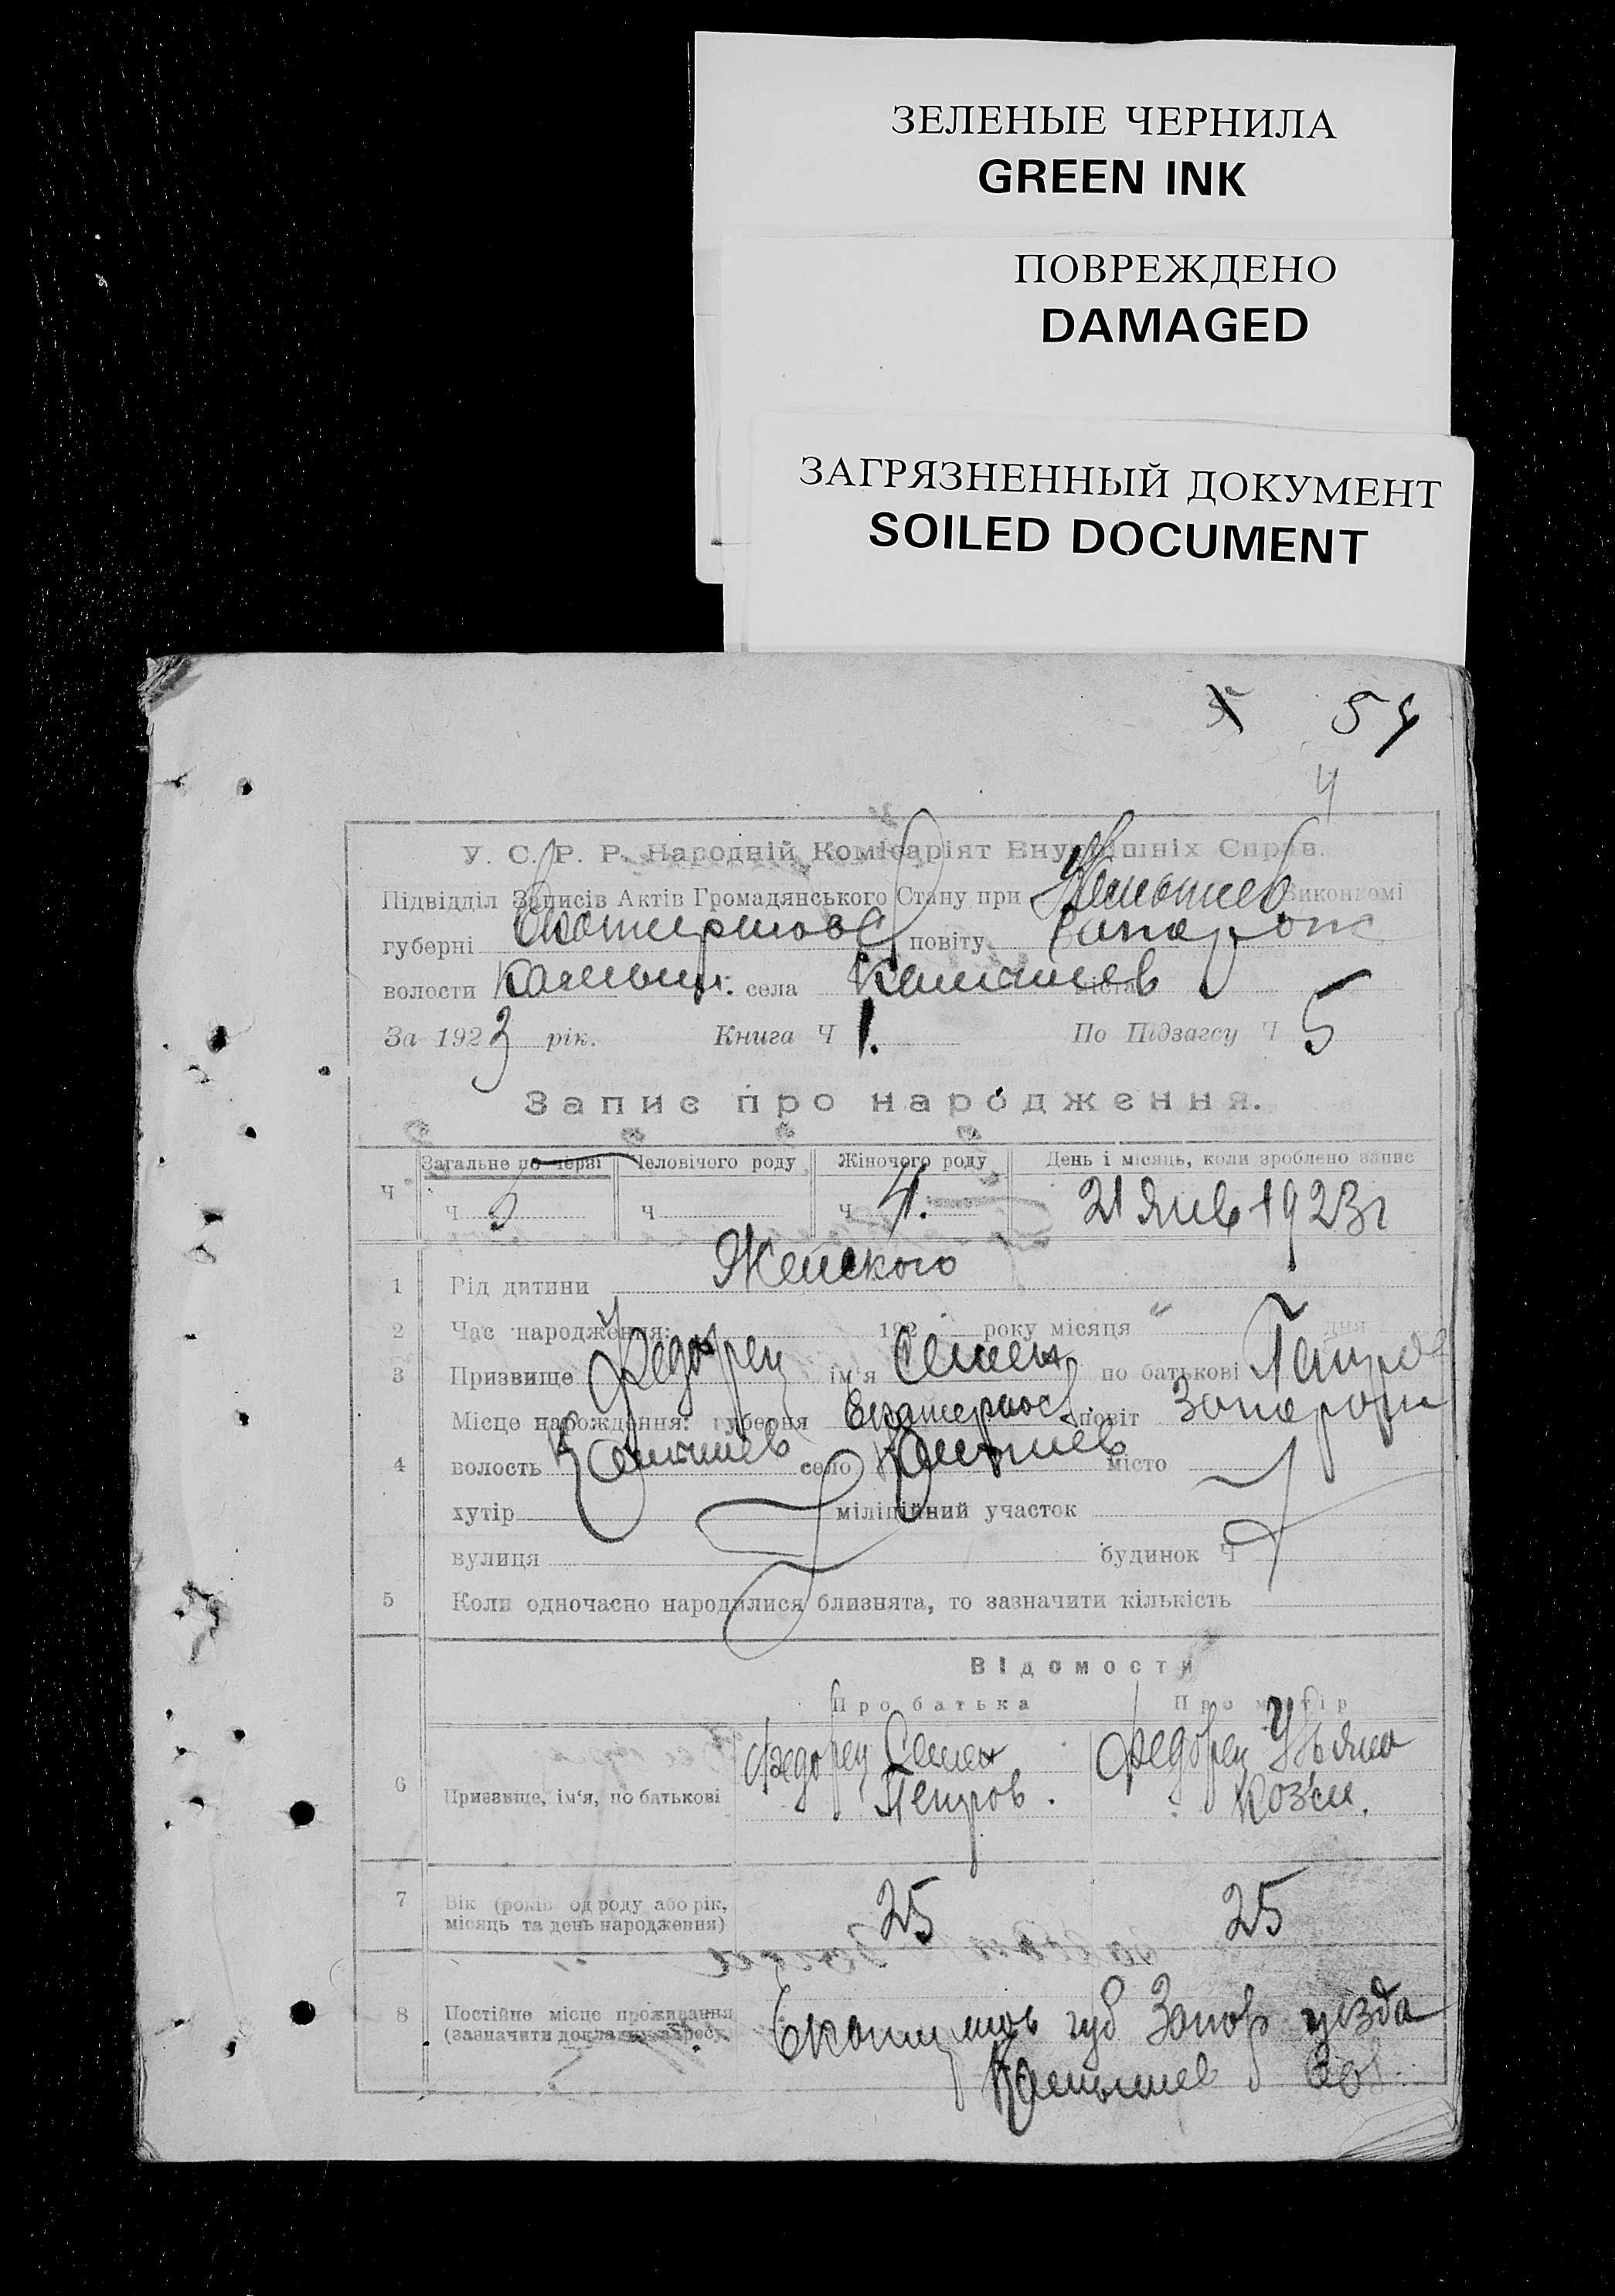 ЗЕЛЕНЫЕ ЧЕРНИЛА
GREEN INK
ПОВРЕЖДЕНО
DAMAGED
ЗАГРЯЗНЕННЫЙ ДОКУМЕНТ
SOILED DOCUMENT
5 54
4
У. С. Р. Р. Народній Комісаріят Внутрішніх Справ.
Підвідділ Записів Актів Громадянського Стану при Камышев Виконкомі
губерні Екатеринов повіту Запорож
волости Камыш. села Камышев міста
За 1923 рік. Книга Ч 1. По Підзагсу Ч 5
Запис про народження.
Загальне по черзі Человічого роду Жіночого роду День і місяць, коли зроблено запис
Ч Ч 5 Ч Ч 4. 21 Янв 1923 г
1 Рід дитини Женского
2 Час народження: 192 року місяця " дня
3 Призвище Федорец ім'я Семен по батькові Петров
Місце нарождення: губерня Екатеринос. повіт Запорож
4 волость Камышев село Камышев місто
хутір міліційний участок
вулиця будинок Ч
5 Коли одночасно народилися близнята, то зазначити кількість
Відомости
Про батька Про матір
Федорец Семен Федорец Ульяна
6 Призвіще, ім'я, по батькові Петров. Козьм.
7 Вік (років од роду або рік, 25 25
місяць та день народження)
8 Постійне місце проживання Екатеринов губ Запор уезда
(зазначити докладну адресу) Камышев вол.